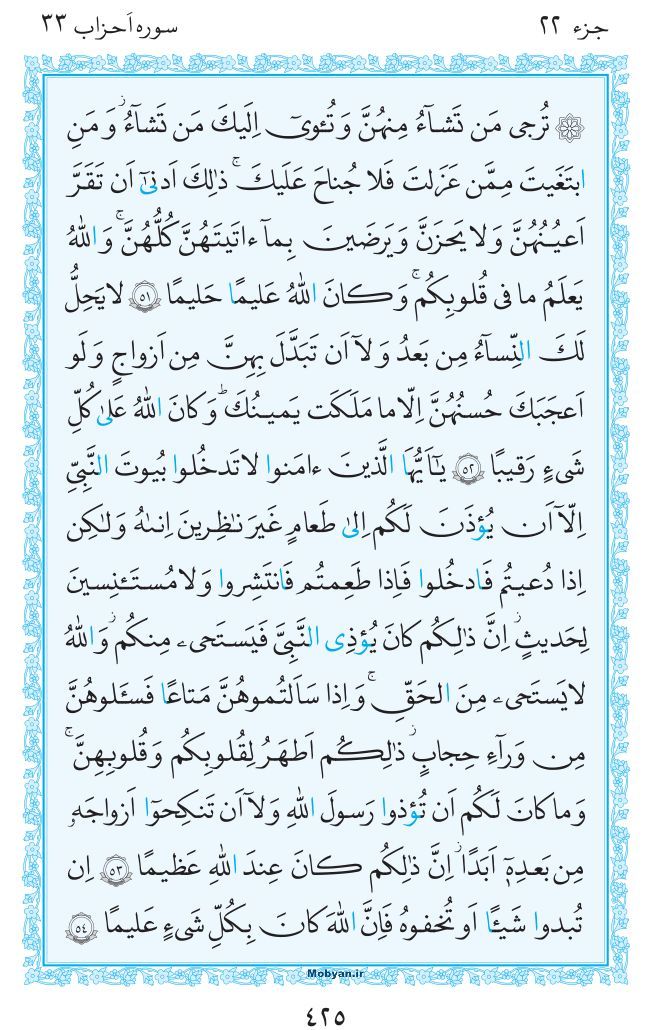 جزء ۲۲
سوره اَحزاب ۳۳
۞ تُرجی مَن تَشآءُ مِنهُنَّ وَ تُـٔویٓ اِلَیكَ مَن تَشآءُ ۖ وَ مَنِ
ابتَغَیتَ مِمَّن عَزَلتَ فَلا جُناحَ عَلَیكَ ۚ ذٰلِكَ اَدنیٰٓ اَن تَقَرَّ
اَعیُنُهُنَّ وَ لا یَحزَنَّ وَ یَرضَینَ بِمآ ءاتَیتَهُنَّ كُلُّهُنَّ ۚ وَ اللهُ
یَعلَمُ ما فی قُلوبِكُم ۚ وَ كانَ اللهُ عَلیمًا حَلیمًا ﴿۵۱﴾ لا یَحِلُّ
لَكَ النِّسآءُ مِن بَعدُ وَ لآ اَن تَبَدَّلَ بِهِنَّ مِن اَزواجٍ وَ لَو
اَعجَبَكَ حُسنُهُنَّ اِلّا ما مَلَكَت یَمینُكَ ۗ وَ كانَ اللهُ عَلیٰ كُلِّ
شَیءٍ رَقیبًا ﴿۵۲﴾ یٰٓاَیُّهَا الَّذینَ ءامَنوا لا تَدخُلوا بُیوتَ النَّبِیِّ
اِلّآ اَن یُؤذَنَ لَكُم اِلیٰ طَعامٍ غَیرَ نٰظِرینَ اِنىٰهُ وَ لٰكِن
اِذا دُعیتُم فَادخُلوا فَاِذا طَعِمتُم فَانتَشِروا وَ لا مُستَـٔنِسینَ
لِحَدیثٍ ۚ اِنَّ ذٰلِكُم كانَ یُؤذِی النَّبِیَّ فَیَستَحیۦ مِنكُم ۖ وَ اللهُ
لا یَستَحیۦ مِنَ الحَقِّ ۚ وَ اِذا سَاَلتُموهُنَّ مَتاعًا فَسـَٔلوهُنَّ
مِن وَرآءِ حِجابٍ ۚ ذٰلِكُم اَطهَرُ لِقُلوبِكُم وَ قُلوبِهِنَّ ۚ
وَ ما كانَ لَكُم اَن تُؤذوا رَسولَ اللهِ وَ لآ اَن تَنكِحوٓا اَزواجَهٗ
مِن بَعدِهٖٓ اَبَدًا ۚ اِنَّ ذٰلِكُم كانَ عِندَ اللهِ عَظیمًا ﴿۵۳﴾ اِن
تُبدوا شَیـًٔا اَو تُخفوهُ فَاِنَّ اللهَ كانَ بِكُلِّ شَیءٍ عَلیمًا ﴿۵۴﴾
Mobyan.ir
۴۲۵